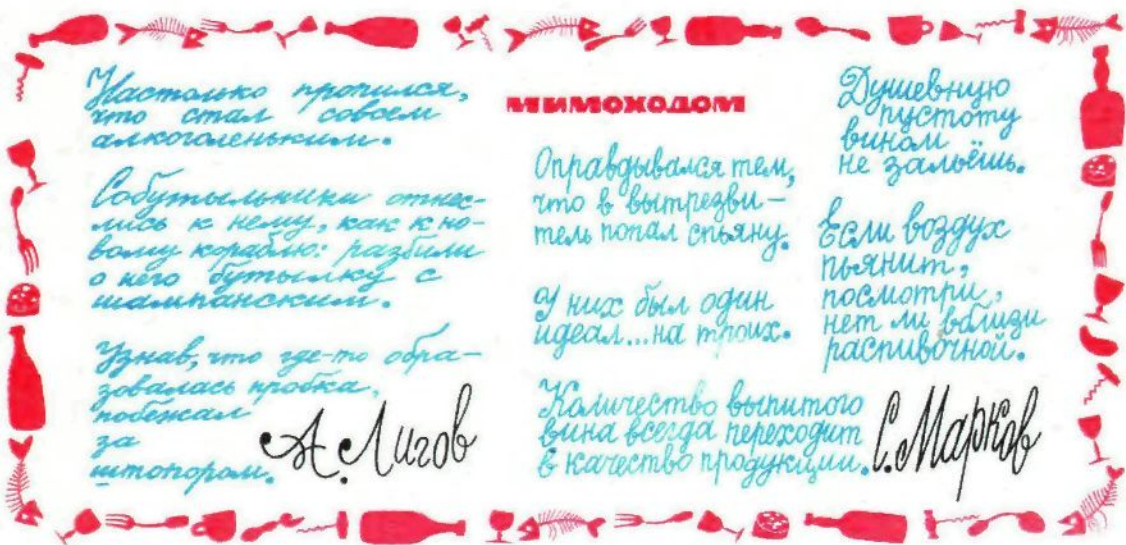 Настолько пропился,
что стал совсем
алкоголеньким.
Собутыльники отнес-
лись к нему, как к но-
вому кораблю: разбили
о него бутылку с
шампанским.
Узнав, что где-то обра-
зовалась пробка,
побежал
за
штопором.
А. Лигов
МИМОХОДОМ
Оправдывался тем,
что в вытрезви-
тель попал спьяну.
У них был один
идеал...на троих.
Количество выпитого
вина всегда переходит
в качество продукции.
Душевную
пустоту
вином
не зальёшь.
Если воздух
пьянит,
посмотри,
нет ли вблизи
распивочной.
С. Марков